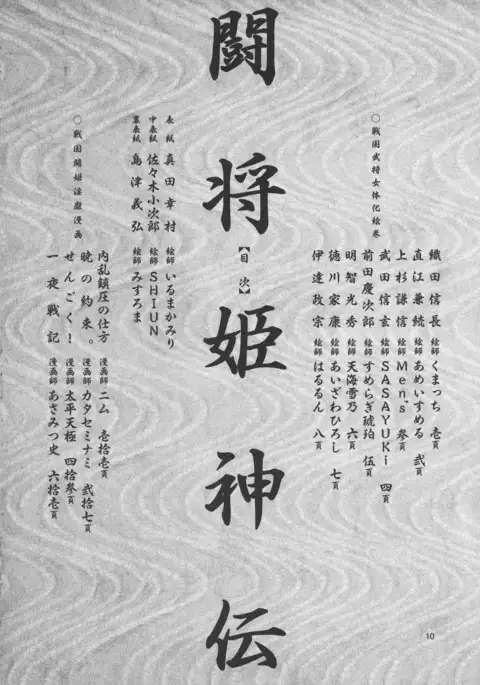 闘将姫神伝
【目次】
○戦国武将女体化絵巻
織田信長 絵師 くまっち 壱頁
直江兼続 絵師 あめいすめる 弐頁
上杉謙信 絵師 Men's 参頁
武田信玄 絵師 SASAYUKi 四頁
前田慶次郎 絵師 すめらぎ琥珀 伍頁
明智光秀 絵師 天海雪乃 六頁
徳川家康 絵師 あいざわひろし 七頁
伊達政宗 絵師 はるるん 八頁
表紙 真田幸村 絵師 いるまかみり
中表紙 佐々木小次郎 絵師 SHIUN
裏表紙 島津義弘 絵師 みすろま
○戦国闘姫淫戯漫画
内乱鎮圧の仕方 漫画師 ニム 壱拾壱頁
暁の約束。 漫画師 カタセミナミ 弐拾七頁
せんごく! 漫画師 太平天極 四拾参頁
一夜戦記 漫画師 あさみつ史 六拾壱頁
10